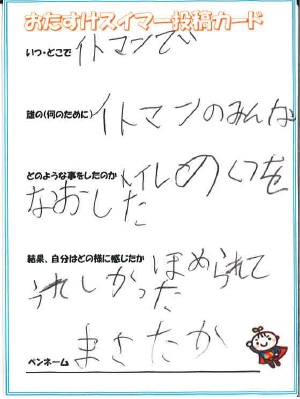 おたすけスイマー投稿カード
いつ・どこで イトマンで
誰の(何のために) イトマンのみんな
どのような事をしたのか トイレのくつを
なおした
結果、自分はどの様に感じたか ほめられて
うれしかった
ペンネーム まさたか